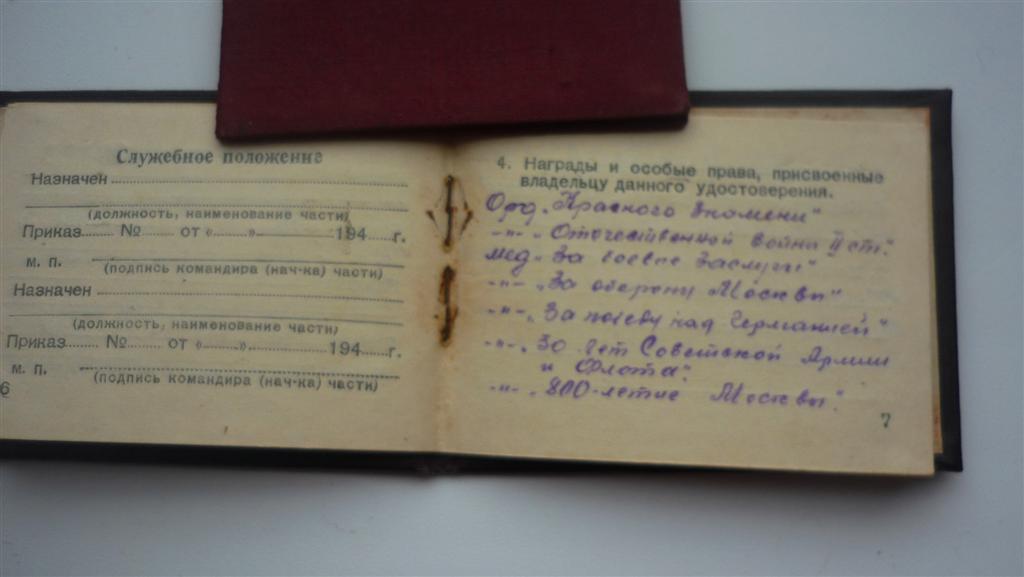 Служебное положение
Назначен
(должность, наименование части)
Приказ...... № ...... от «......» ...... 194......г.
м. п.
(подпись командира (нач-ка) части)
Назначен
(должность, наименование части)
Приказ...... № ...... от «......» ...... 194......г.
м. п.
(подпись командира (нач-ка) части)
6
4. Награды и особые права, присвоенные
владельцу данного удостоверения.
Орд. „Красного Знамени"
-„- „Отечественной война II ст."
мед. „За боевые заслуги"
-„- „За оборону Москвы"
-„- „За победу над Германией"
-„- „30 лет Советской Армии
и Флота".
-„- „800-летие Москвы".
7